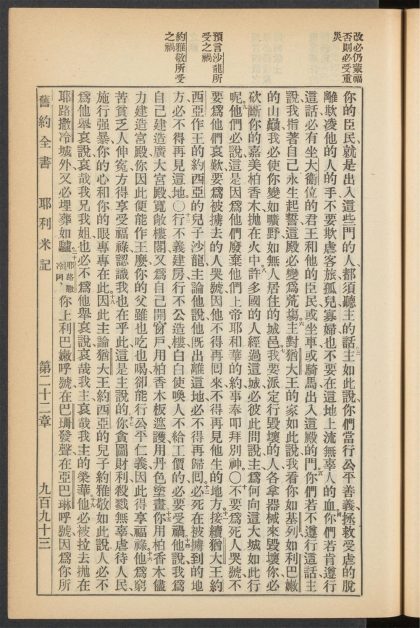 改必仍蒙福
否則必受重
災
預言沙龍所
受之禍
約雅敬所受
之禍
你的臣民就是出入這些門的人、都須聽主的話主如此說、你們當行公平善義、拯救受虐的脫
離欺凌他的人的手不要欺虐客旅孤兒寡婦也不要在這地上流無辜人的血你們若肯遵行
這話必有坐大衛位的君王和他的臣民或坐車或騎馬出入這殿的門你們若不遵行這話主
說我指著自己永生起誓這殿必變為荒塲主對猶大王的家如此說我看你如基列如利巴嫩
的山巔我必使你變如曠野如無人居住的城邑我要派定行毀壞的人各拿器械來毀壞你必
砍斷你的嘉美柏香木拋在火中許多國的人經過這城必彼此問說主為何向這大城如此行
呢他們必說這是因他們廢棄他們上帝耶和華的約事奉叩拜別神○不要為死人哭號不
要為他們哀歎要為被擄去的人哭號因他不得再回來不得再見他生的地方接續猶大王約
西亞作王的約西亞的兒子沙龍主論他說他既出離這地必不再歸回必死在被擄到的地
方必不得再見這地○行不義建房行不公造樓白白使喚人不給工價的必要受禍他說我為
自己建造廣大宮殿寬敞樓閣又為自己開窗戶用柏香木板遮護用丹色塗畫你用柏香木儘
力建造宮殿你因此便能作王麼你的父雖也吃也喝卻能行公平仁義因此得享福祿他為窮
苦貧乏人伸冤方得享受福祿認識我也在乎此這是主說的你貪圖財利殺戮無辜虐待人民
施行強暴你的心和你的眼專專在此因此主論猶大王約西亞的兒子約雅敬如此說人必不
為他舉哀說哀哉我兄我姐也必不為他舉哀說哀哉我主哀哉我主的榮華他必被拉去拋在
耶路撒冷城外又必埋葬如驢耶路撒冷阿你上利巴嫩呼號在巴珊發聲在亞巴琳呼號因為你所
舊約全書 耶利米記 第二十二章 九百九十三